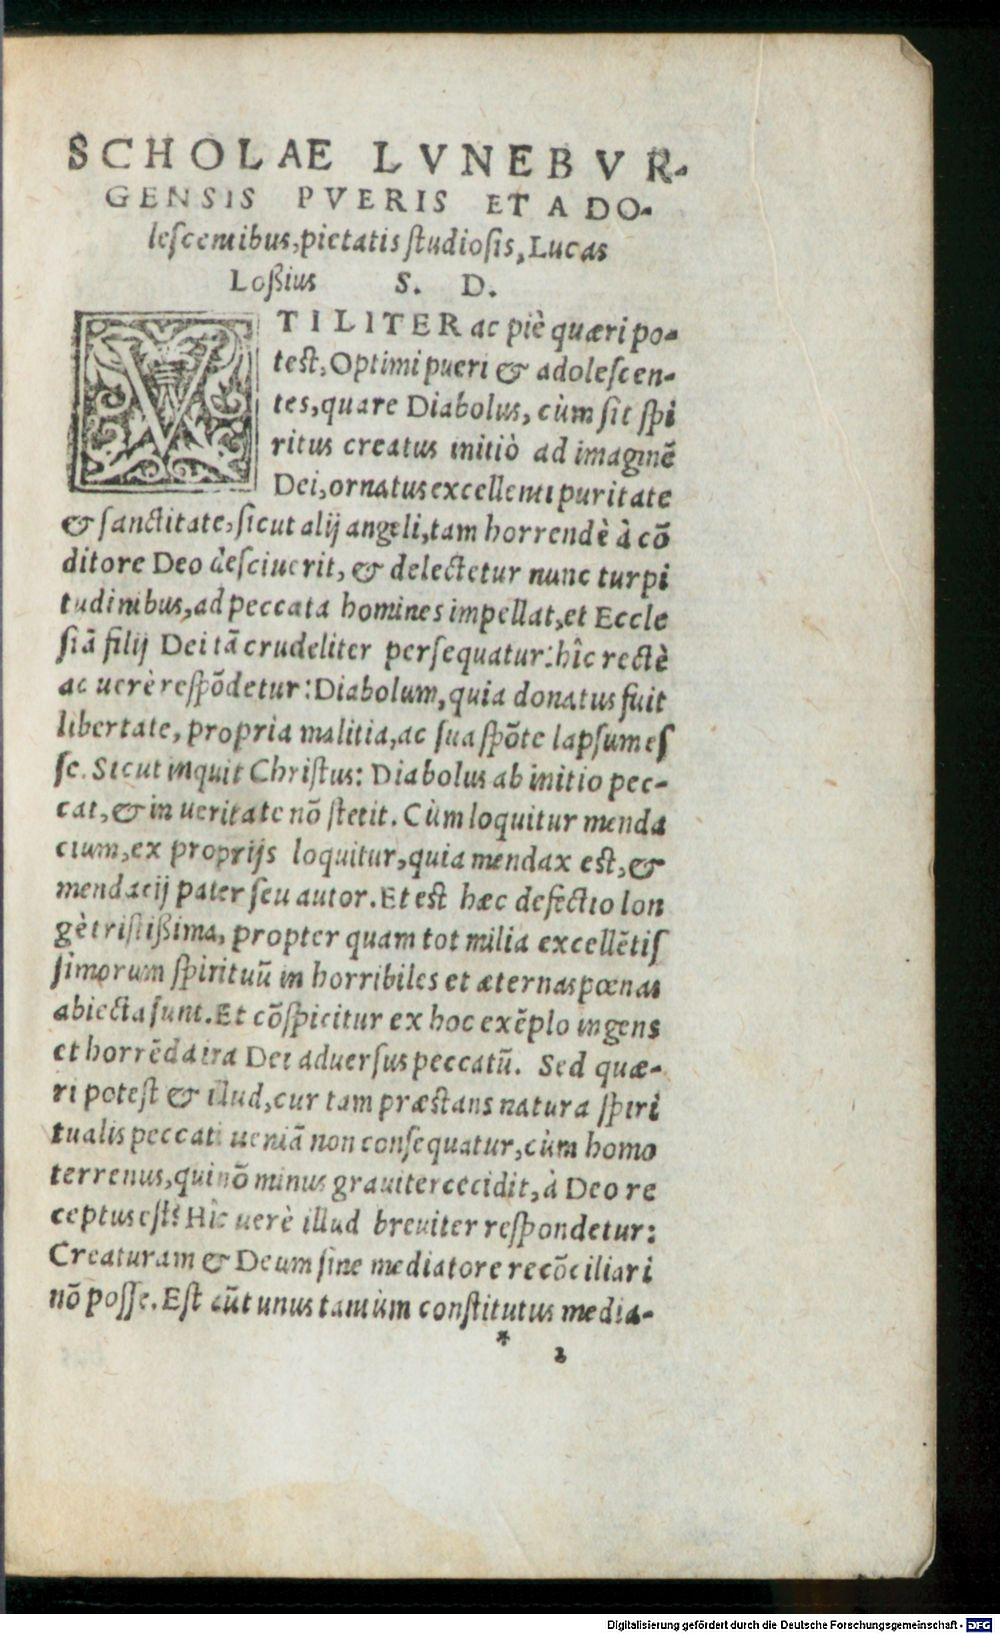 SCHOLAE LVNEBVR-
GENSIS PVERIS ET ADO-
lescentibus, pietatis studiosis, Lucas
Loßius S. D.
VTILITER ac piè quæri po-
test, Optimi pueri & adolescen-
tes, quare Diabolus, cùm sit spi
ritus creatus initiò ad imaginẽ
Dei, ornatus excellenti puritate
& sanctitate, sicut alij angeli, tam horrendè à cõ
ditore Deo desciuerit, & delectetur nunc turpi
tudinibus, ad peccata homines impellat, et Eccle
siã filij Dei tã crudeliter persequatur: hîc rectè
ac uerè respõdetur: Diabolum, quia donatus fuit
libertate, propria malitia, ac sua spõte lapsum es
se. Sicut inquit Christus: Diabolus ab initio pec-
cat, & in ueritate nõ stetit. Cùm loquitur menda
cium, ex proprijs loquitur, quia mendax est, &
mendacij pater seu autor. Et est hæc defectio lon
gè tristißima, propter quam tot milia excellẽtis
simorum spirituũ in horribiles et æternas pœnas
abiecta sunt. Et cõspicitur ex hoc exẽplo ingens
et horrẽda ira Dei aduersus peccatũ. Sed quæ-
ri potest & illud, cur tam præstans natura spiri
tualis peccati ueniã non consequatur, cùm homo
terrenus, qui nõ minus grauiter cecidit, à Deo re
ceptus est? Hîc uerè illud breuiter respondetur:
Creaturam & Deum sine mediatore recõciliari
nõ posse. Est aũt unus tantùm constitutus media-
* 2
Digitalisierung gefördert durch die Deutsche Forschungsgemeinschaft - DFG